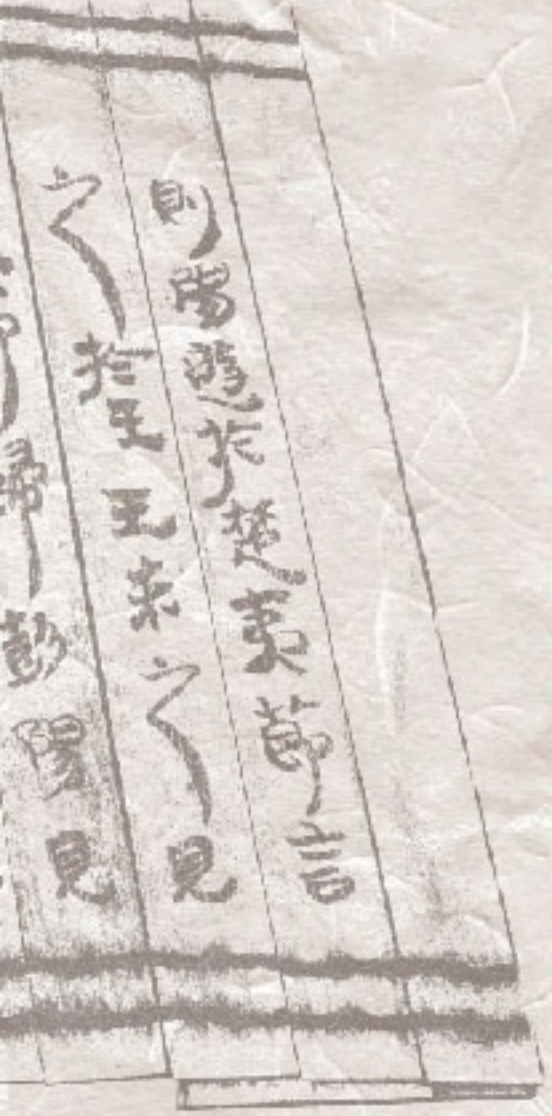 則陽遊於楚夷節言
之於王王未之見
節歸彭陽見